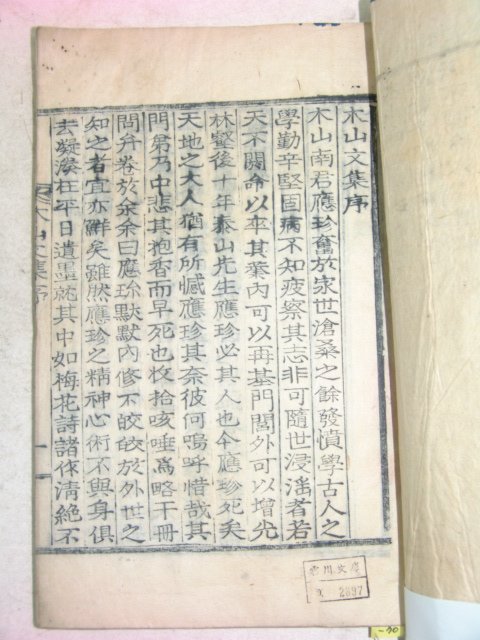 木山文集序
木山南君應珍奮於家世滄桑之餘發憤學古人之
學勤辛堅固病不知疲察其志非可隨世浸滛者若
天不閼命以卒其業內可以再基門閭外可以增光
林壑後十年泰山先生應珍必其人也今應珍死矣
天地之大人猶有所憾應珍其奈彼何嗚呼惜哉其
門第乃中悲其抱香而早死也收拾咳唾爲略干冊
問弁卷於余余曰應珎默默內修不皎皎於外世之
知之者宜亦鮮矣雖然應珍之精神心術不與身俱
去凝湊在平日遺墨就其中如梅花詩諸作淸絶不
木山文集序
一
2897